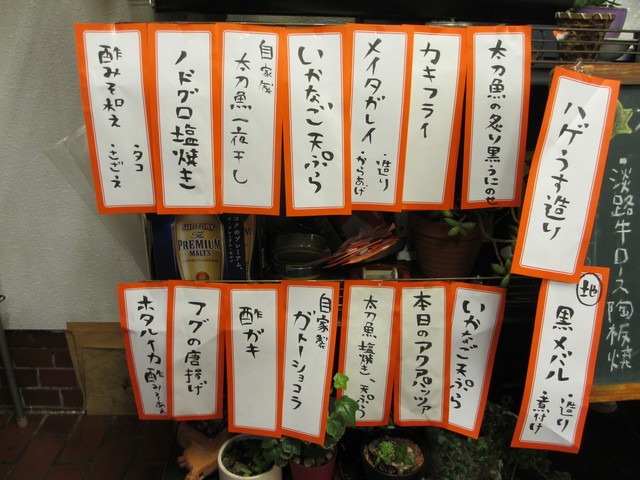 太刀魚の炙り黒うにのせ
カキフライ
メイタガレイ
・造り
・からあげ
いかなご天ぷら
自家製
太刀魚一夜干し
ノドグロ塩焼き
酢みそ和え
・タコ
・さざえ
ハゲうす造り
地
黒メバル
・造り
・煮付け
いかなご天ぷら
本日のアクアパッツァ
太刀魚塩焼き、天ぷら
自家製
ガトーショコラ
酢ガキ
フグの唐揚げ
ホタルイカ酢みそあえ
・淡路牛ロース陶板焼
SUNTORY
The
PREMIUM
MALT'S